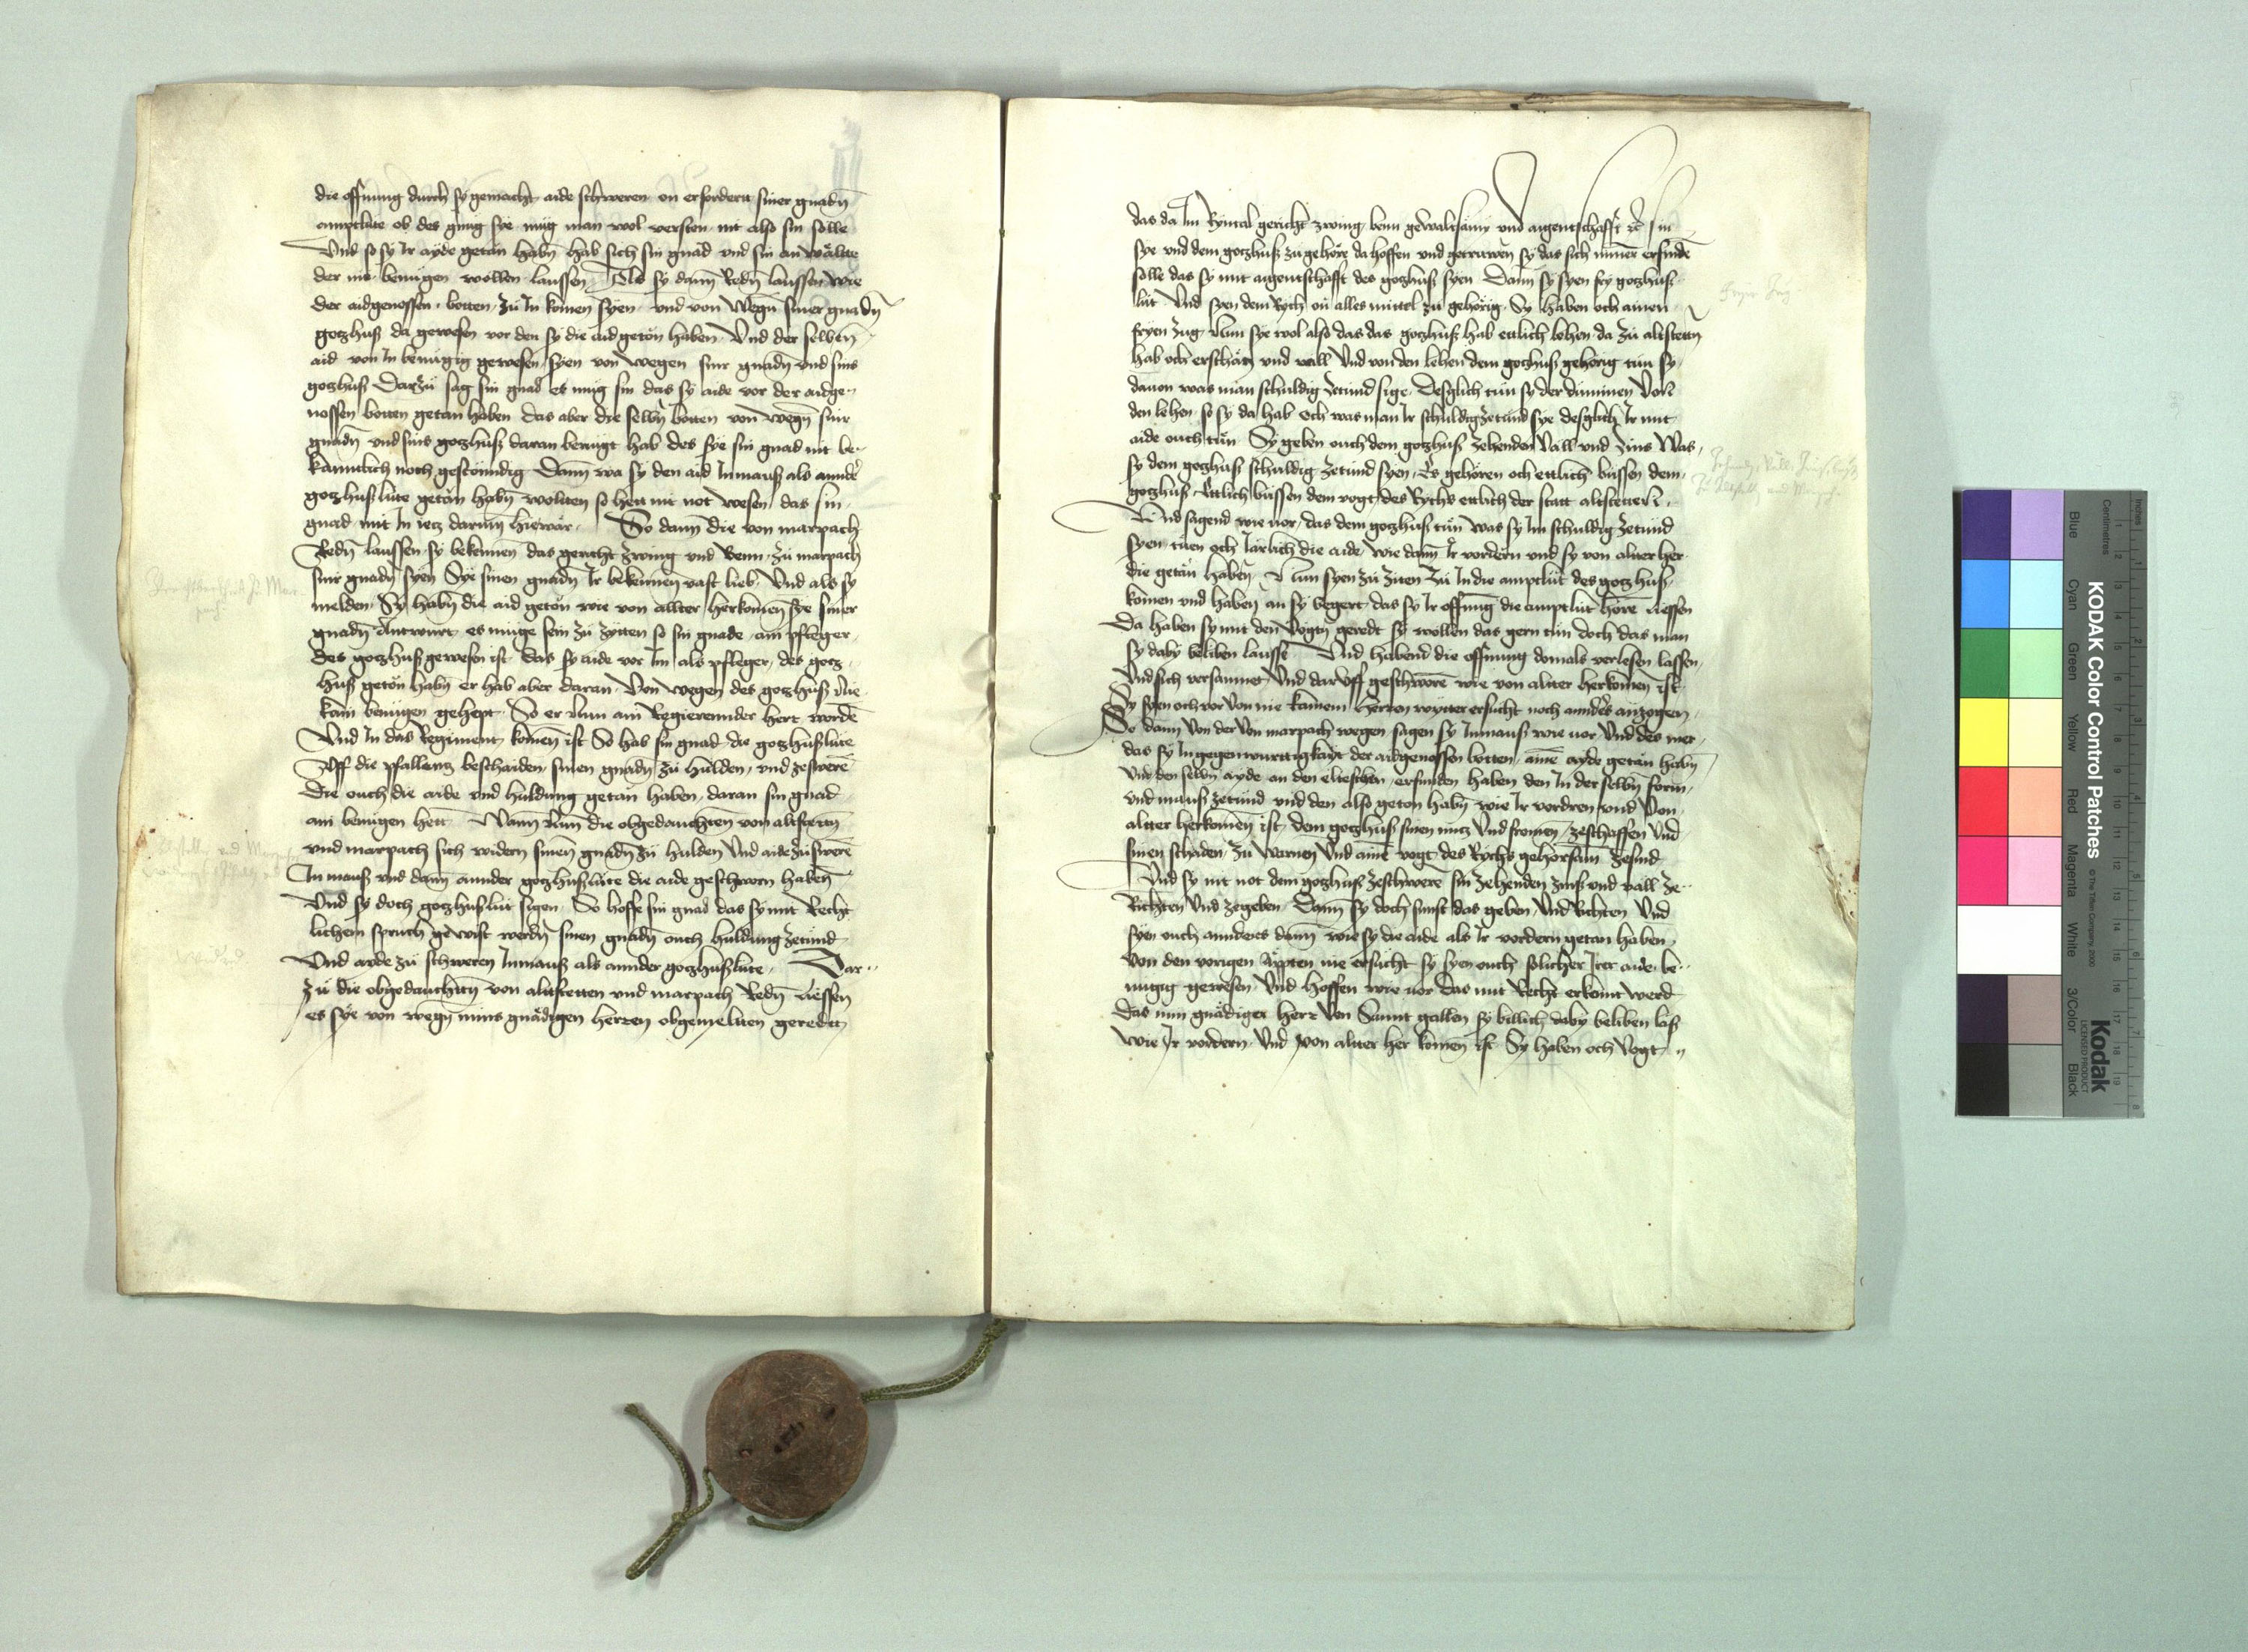 die offnung durch sy gemacht aide schweren on erfordern siner gnadn
amptlüte ob des gnug sye mug man wol versten nit also sin solle
Vnd so sy Ir ayde getan habn hab sich sin gnad vnd sin anwälte
der nie benügen wollen laussen Als sy dann Redn laussen wie
der aidgenossen botten zu In komen syen vnd von wegn siner gnadn
gotzhuß da gewesen vor den sy die aid geton haben Vnd der selben
aid von In benügig gewesen syen von wegen sinr gnadn vnd sins
gotzhuß Darzu sag sin gnad es mug sin das sy aide vor der aidge-
nossen botten getan haben das aber die selbn botten von wegn sinr
gnadn vnd sins gotzhuß daran benügt hab des sye sin gnad nit be-
kanntlich noch gestönndig Dann wa sy den aid Inmauß als annder
gotzhußlüte getan habn wollten so hett nit not wesen das sin
gnad mit In ietz darumb hiewär So dann die von marpach
Redn laussen sy bekennen das gericht zwing vnd Benn zu marpach
sinr gnadn syen Sye sinen gnadn Ir bekennen vast lieb Vnd als sy
melden Sy habn die aid geton wie von allter herkomen sye siner
gnadn Antwurt es müge sein zu zytten so sin gnade ain pfleger
des gotzhuß gewesen ist das sy aide vor Im als pfleger des gotz
huß geton habn er hab aber daran Von wegen des gotzhuß nie
kain benügen gehept So er Nun ain Regierennder herr worde
Vnd In das Regiment komen ist So hab sin gnad die gotzhußlüte
Vff die pfallentz beschaiden sinen gnadn zu hulden vnd zeswere
Die ouch die aide vnd huldung getan haben daran sin gnad
ain benügen hett Wann Nun die obgedauchten von altstettn
vnd marpach sich widern sinen gnadn zu hulden Vnd aide zuswere
In mauß vnd dann annder gotzhußlüte die aide geschworn haben
Vnd sy doch gotzhußlüt sigen So hoffe sin gnad das sy mit Recht
lichem spruch gewist werdn sinen gnadn ouch huldung zetund
Vnd ayde zu schweren Inmauß als annder gotzhußlüte Dar-
zu die obgedauchttn von altstetten vnd marpach Redn liessen
es sye von wegn mins gnädigen herren obgemelten geredtt
das da Im Ryntal gericht zwing benn gewaltsamy vnd aigentschafft etc sin
sye vnd dem gotzhuß zu gehöre da hoffen vnd getruwen sy das sich nimer erfinde
sölle das sy mit aigentschafft des gotzhuß syen Dann sy syen fry gotzhuß
lüt Vnd syen dem Rych on alles mittel zu gehörig Sy haben och ainen
fryen zug Nun sye wol also das das gotzhuß hab ettlich lehen da zu altstettn
hab och erschätz vnd väll Vnd von den lehen dem gotzhuß gehörig tun sy
dauon was man schuldig zetund sige Desglich tun sy der Von
den lehen so sy da hab och was man Ir schuldig zetund sye desglich Ir mit
aide ouch tun Sy geben ouch dem gotzhuß zehenden Väll vnd zins Was
sy dem gotzhuß schuldig zetund syen Es gehören och ettlich bussen dem
gotzhuß Ettlich bussen dem vogt des Rychs ettlich der statt altstetten
Vnd sagend wie uor das dem gotzhuß tun was sy Im schuldig zetund
syen tuen och Järlich die aide wie dann Ir vordern vnd sy von alter her
die getan haben Nun syen zu ziten zu In die amptlüt des gotzhuß
komen vnd haben an sy begert das sy Ir offnung die amptlüt höre liessen
Da haben sy mit den Vogtn geredt sy wollen das gern tun doch das man
sy daby beliben lausse Vnd habend die offnung domals verlesen lassen
Vnd sich versamnet Vnd daruff geschwore wie von alter herkomen ist
Sy syen och vor von nie kainem herren wytter ersucht noch annders anzogen
So dann Von der Von marpach wegen sagen sy Inmauß wie uor Vnd des mer
das sy In gegenwurttigkayt der aidgenossen botten aine ayde getan habn
Vnd den selbn ayde an den eltesten erfunden haben den In der selbn form
vnd mauß zetund vnd den also geton habn wie Ir vordren vnd Von
alter herkomen ist dem gotzhuß sinen nutz Vnd fromen zeschaffen Vnd
sinen schaden zu warnen Vnd aine vogt des Rychs gehorsam zesind
Vnd sy nit not dem gotzhuß zeschwere sin zehenden zinß vnd väll ze-
Richten Vnd zegeben Dann sy doch sunst das geben Vnd Richten Vnd
syen ouch annders dann wie sy die aide als Ir vordern getan haben
Von den vorigen Äppten nie ersucht sy syen ouch solicher Irer aide be-
nugig gewesen Vnd hoffen wie uor das mit Recht erkennt werd
Das min gnädiger herr Von Sannt gallen sy billich daby beliben laß
Wie Ir vordern Vnd von alter her komen ist Sy haben och Vogt
KODAK Color Control Patches
© The Tiffen Company, 2000
Kodak
LICENSED PRODUCT
Inches
Centimetres
Blue Cyan Green Yellow Red Magenta White 3/Color Black